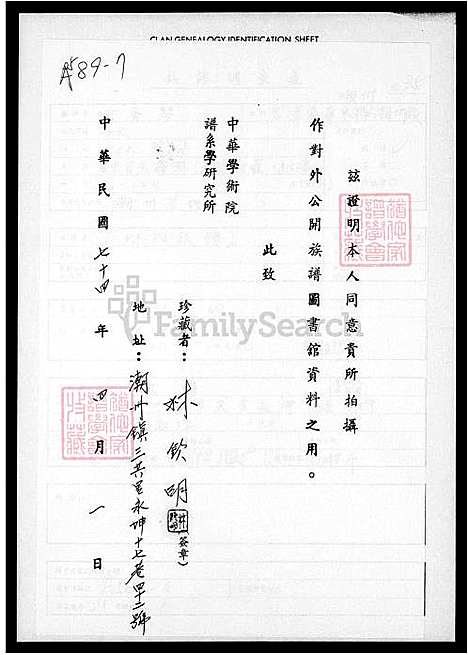 CLAN GENEALOGY IDENTIFICATION SHEET
A589-7
茲證明本人同意貴所拍攝
作對外公開族譜圖書館資料之用。
此致
中華學術院
譜系學研究所
珍藏者：林欽明
(簽章)
地址：潮州鎮三共里永坤十七巷四十二號
中華民國七十四年四月一日
FamilySearch